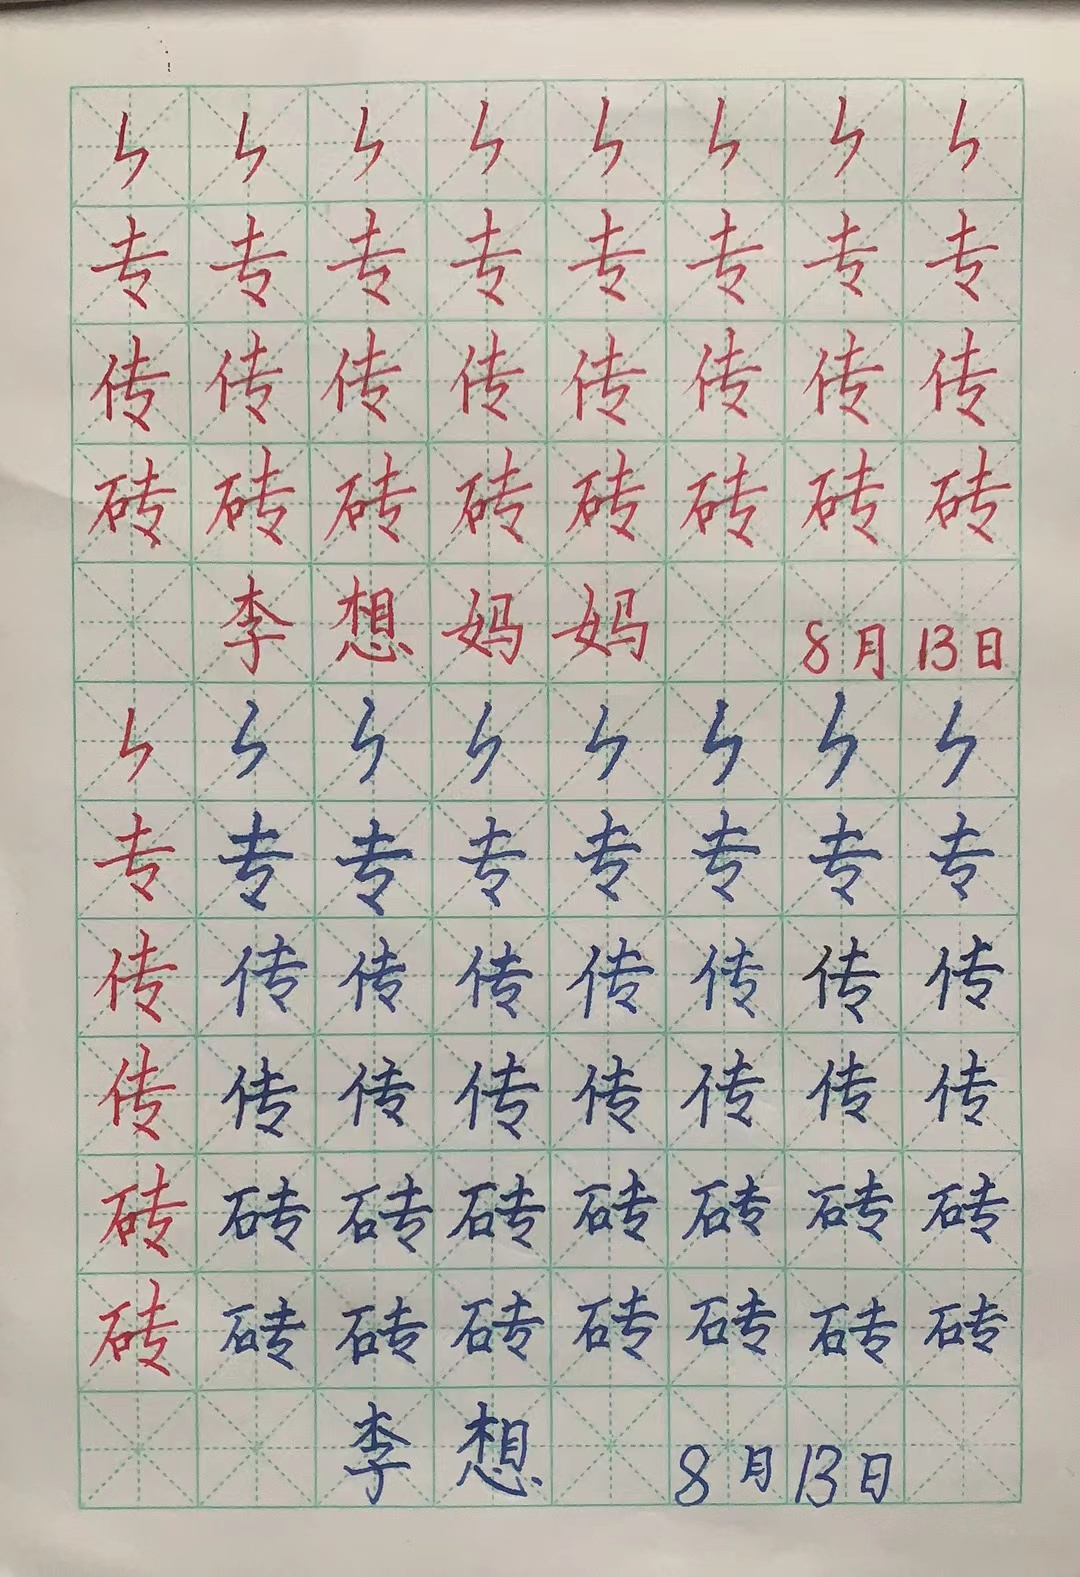 ㄣ ㄣ ㄣ ㄣ ㄣ ㄣ ㄣ ㄣ
专 专 专 专 专 专 专 专
传 传 传 传 传 传 传 传
砖 砖 砖 砖 砖 砖 砖 砖
李 想 妈 妈 8月 13日
ㄣ ㄣ ㄣ ㄣ ㄣ ㄣ ㄣ ㄣ
专 专 专 专 专 专 专 专
传 传 传 传 传 传 传 传
传 传 传 传 传 传 传 传
砖 砖 砖 砖 砖 砖 砖 砖
砖 砖 砖 砖 砖 砖 砖 砖
李 想 8月13日